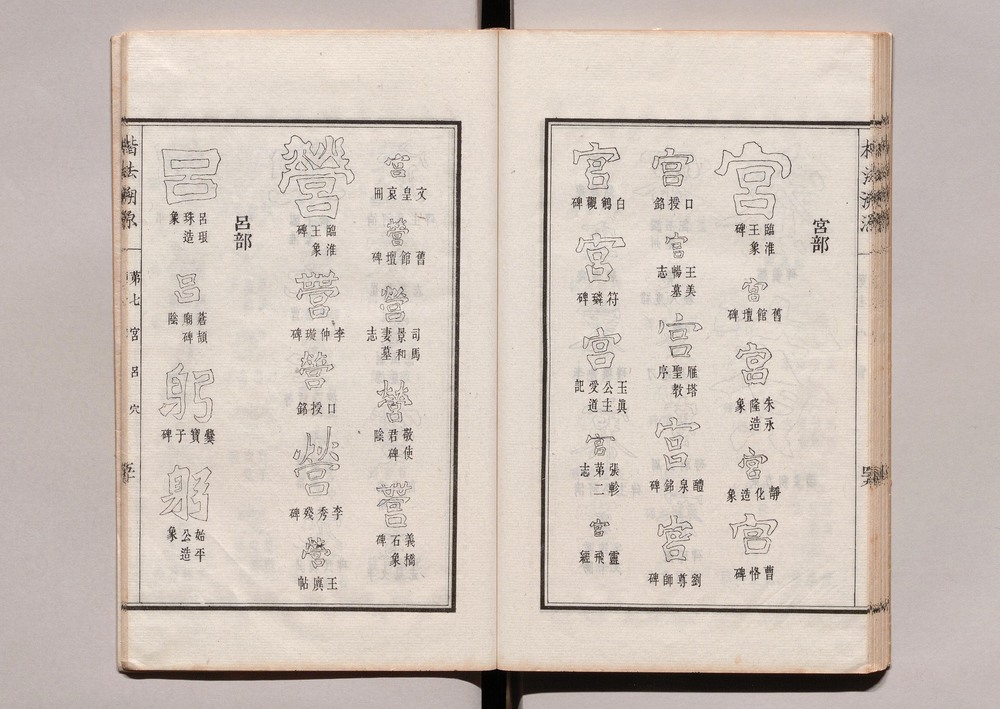 宮部
宮 臨淮王象碑 宮 舊館壇碑 宮 朱永隆造象 宮 靜化造象 宮 曹恪碑
宮 口授銘 宮 王美暢墓志 宮 雁塔聖教序 宮 醴泉銘碑 宮 劉尊師碑
宮 白鶴觀碑 宮 符璘碑 宮 玉眞公主受道記 宮 張軫第二志 宮 靈飛經
宮 文皇哀冊 營 舊館壇碑 營 司馬景和妻墓志 營 敬使君碑陰 營 義橋石象碑
營 臨淮王象碑 營 李仲璇碑 營 口授銘 營 李秀殘碑 營 王廙帖
呂部
呂 呂珠造象 呂 蒼頡廟碑陰 躬 爨寶子碑 躬 始平公造象
楷法溯源 第七 宮 呂 穴